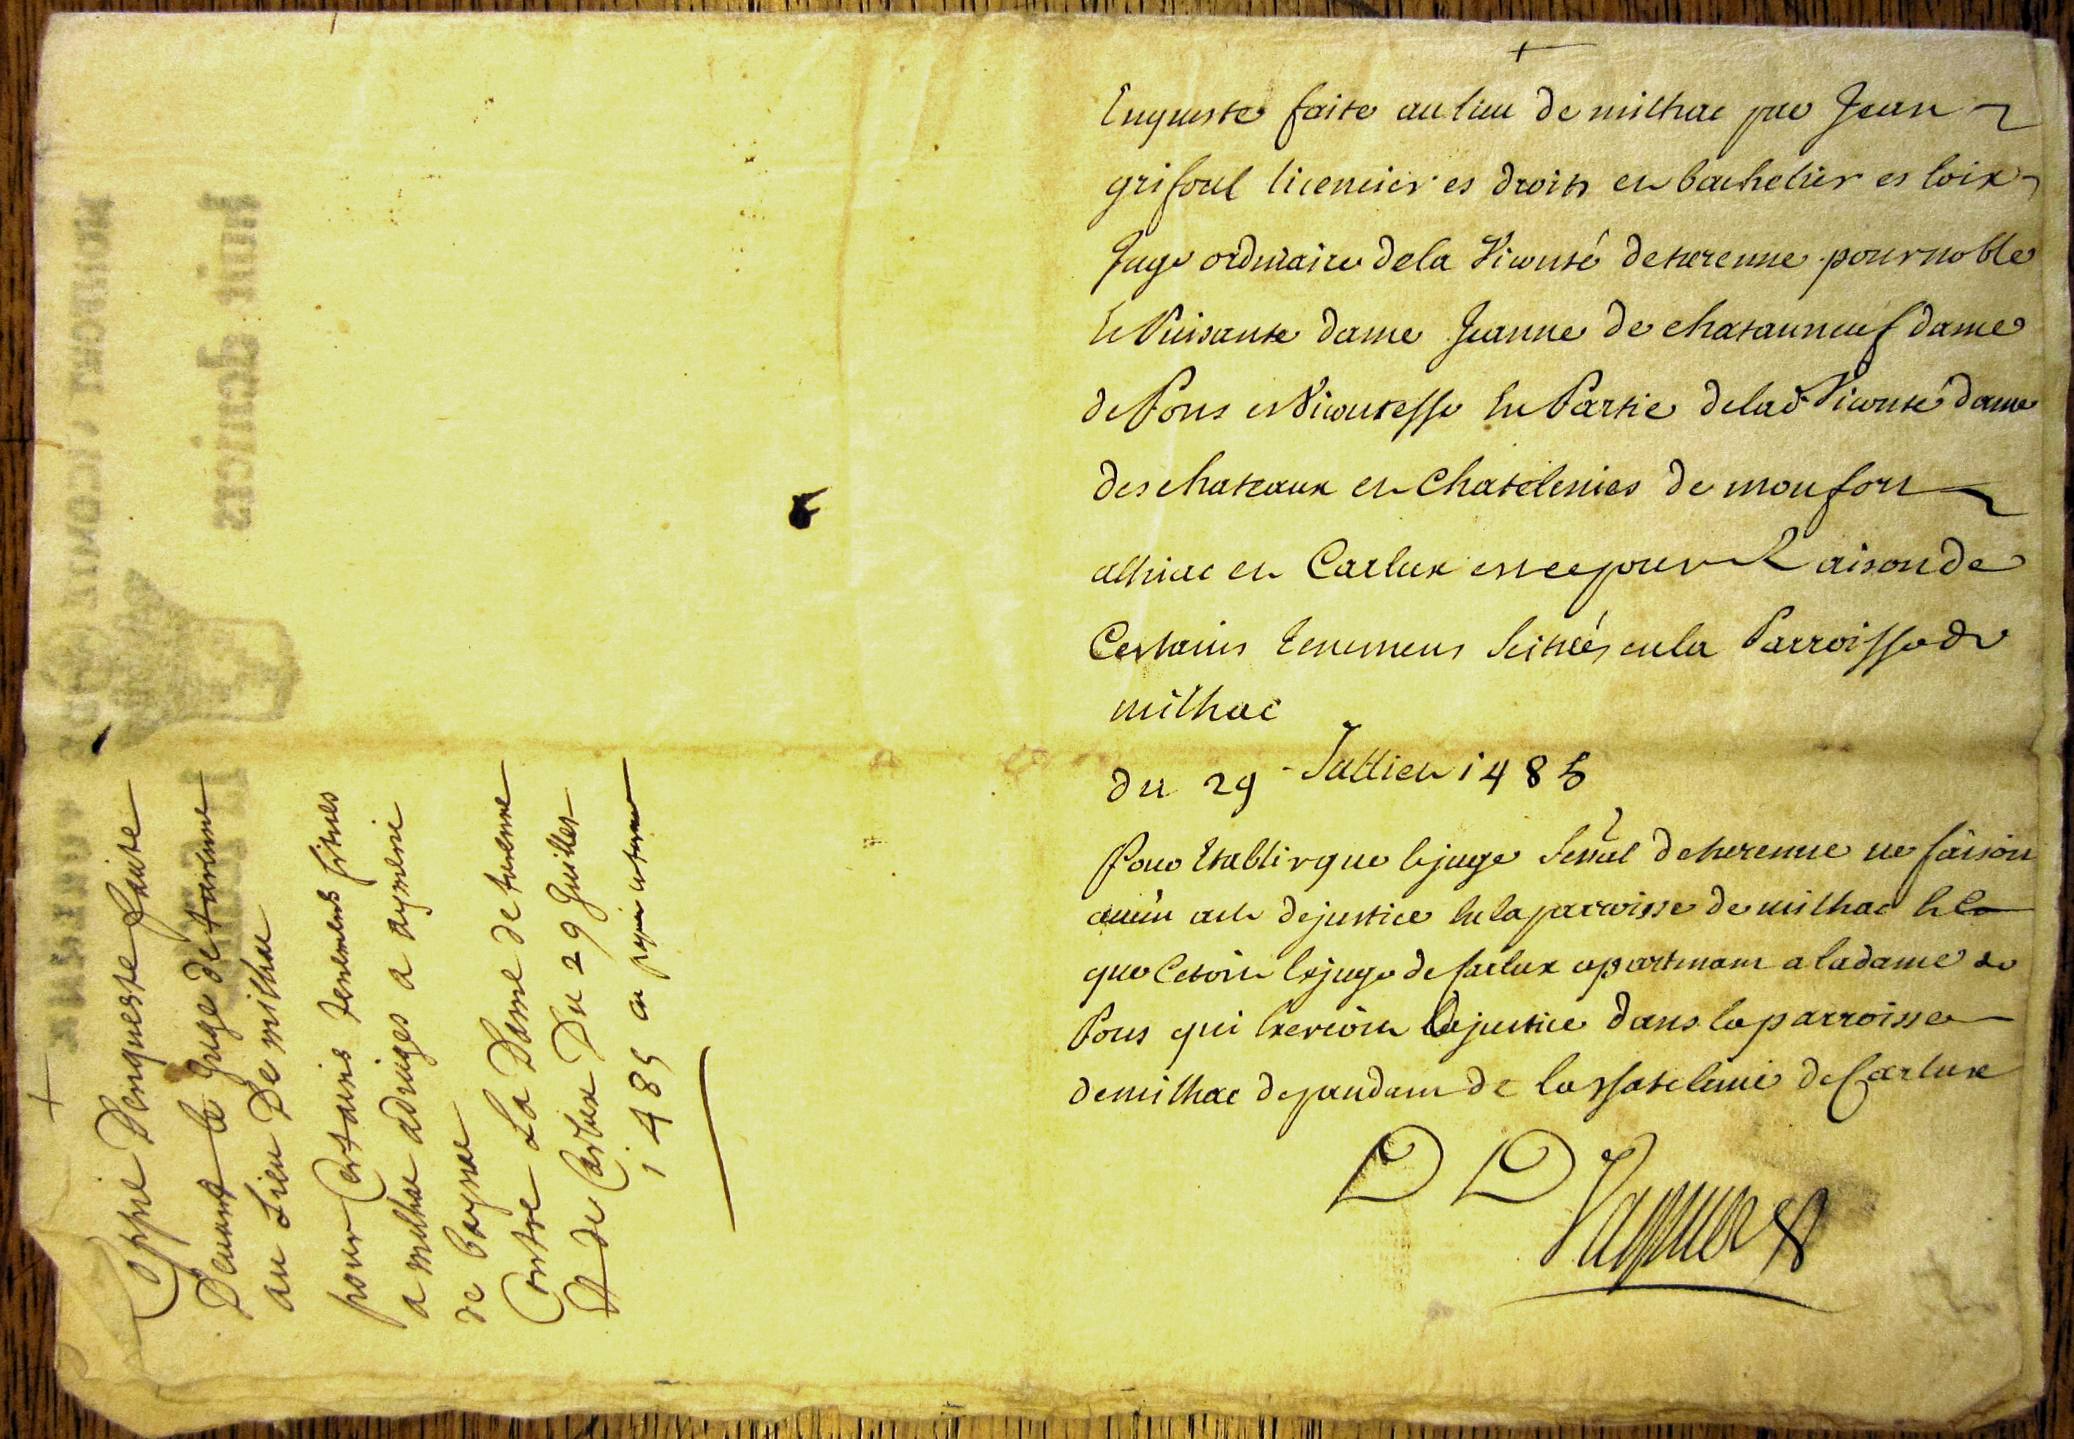 Enqueste faite au lieu de milhac par Jean
grifoul licencier es droits et bachelier es loix
Juge ordinaire de la Viconté de turenne pour noble
Et Puisante dame Jeanne de chatauneuf dame
de Pons et Vicontesse En Partie de lad Viconté dame
des chateaux et Chatelenies de monfort
alhiac et Carlux et ce pour Raison de
Certains tenemens Scitués en la Parroisse de
milhac
du 29 Julliet 1485
Pour Etablir que le juge Senal de turenne ne faisoit
aucun acte de justice En la parroisse de milhac Et
que Cetoit le juge de Carlux apartenant a la dame de
Pons qui Exercoit la justice dans la parroisse
de milhac depandant de la chatelenie de Carlux
D D
Coppie Denqueste faite
Devant le Juge de turenne
au Lieu De milhac
pour Certains tenemens situés
a milhac adjuges a aymeric
de baynac
Contre La Dame de turenne
& de Carlux Du 29 Juillet
1485 en papier
huit deniers